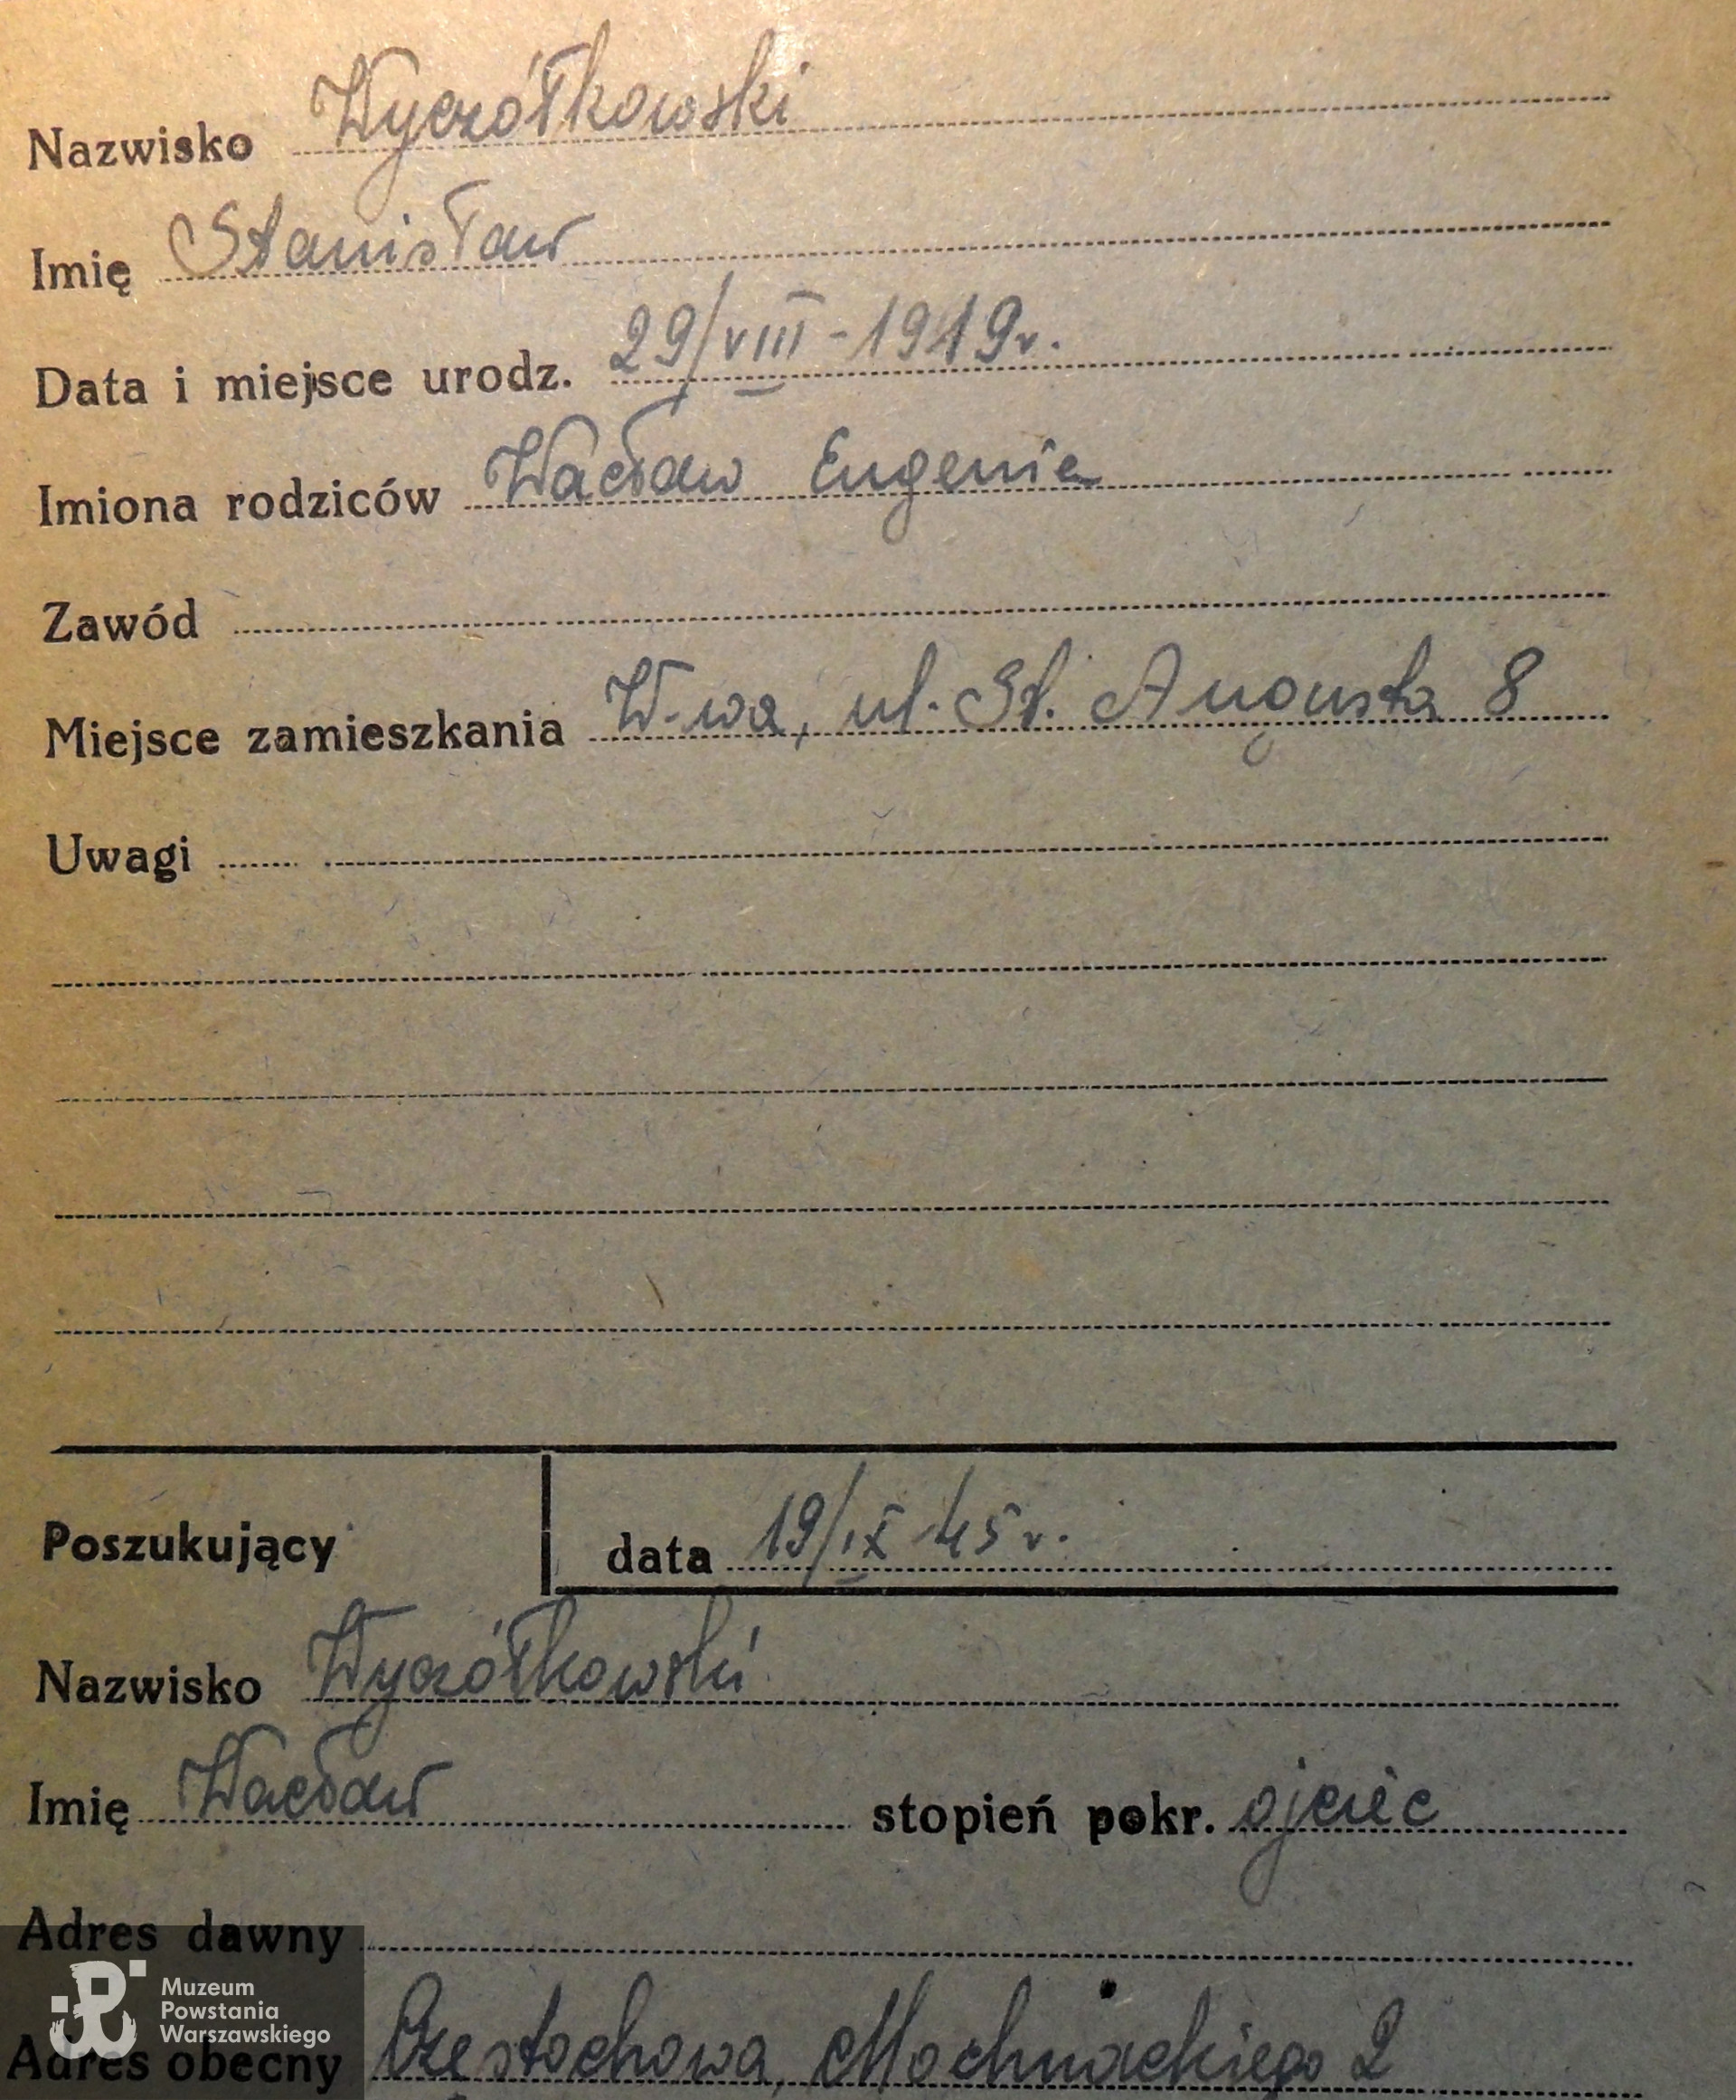 Nazwisko Wyczółkowski
Imię Stanisław
Data i miejsce urodz. 29/VIII-1919r.
Imiona rodziców Wacław Eugenia
Zawód
Miejsce zamieszkania W-wa, ul. St. Augusta 8
Uwagi
Poszukujący data 19/IX 45 r.
Nazwisko Wyczółkowski
Imię Wacław stopień pokr. ojciec
Adres dawny
Adres obecny Częstochowa, Mochnackiego 2
Muzeum
Powstania
Warszawskiego